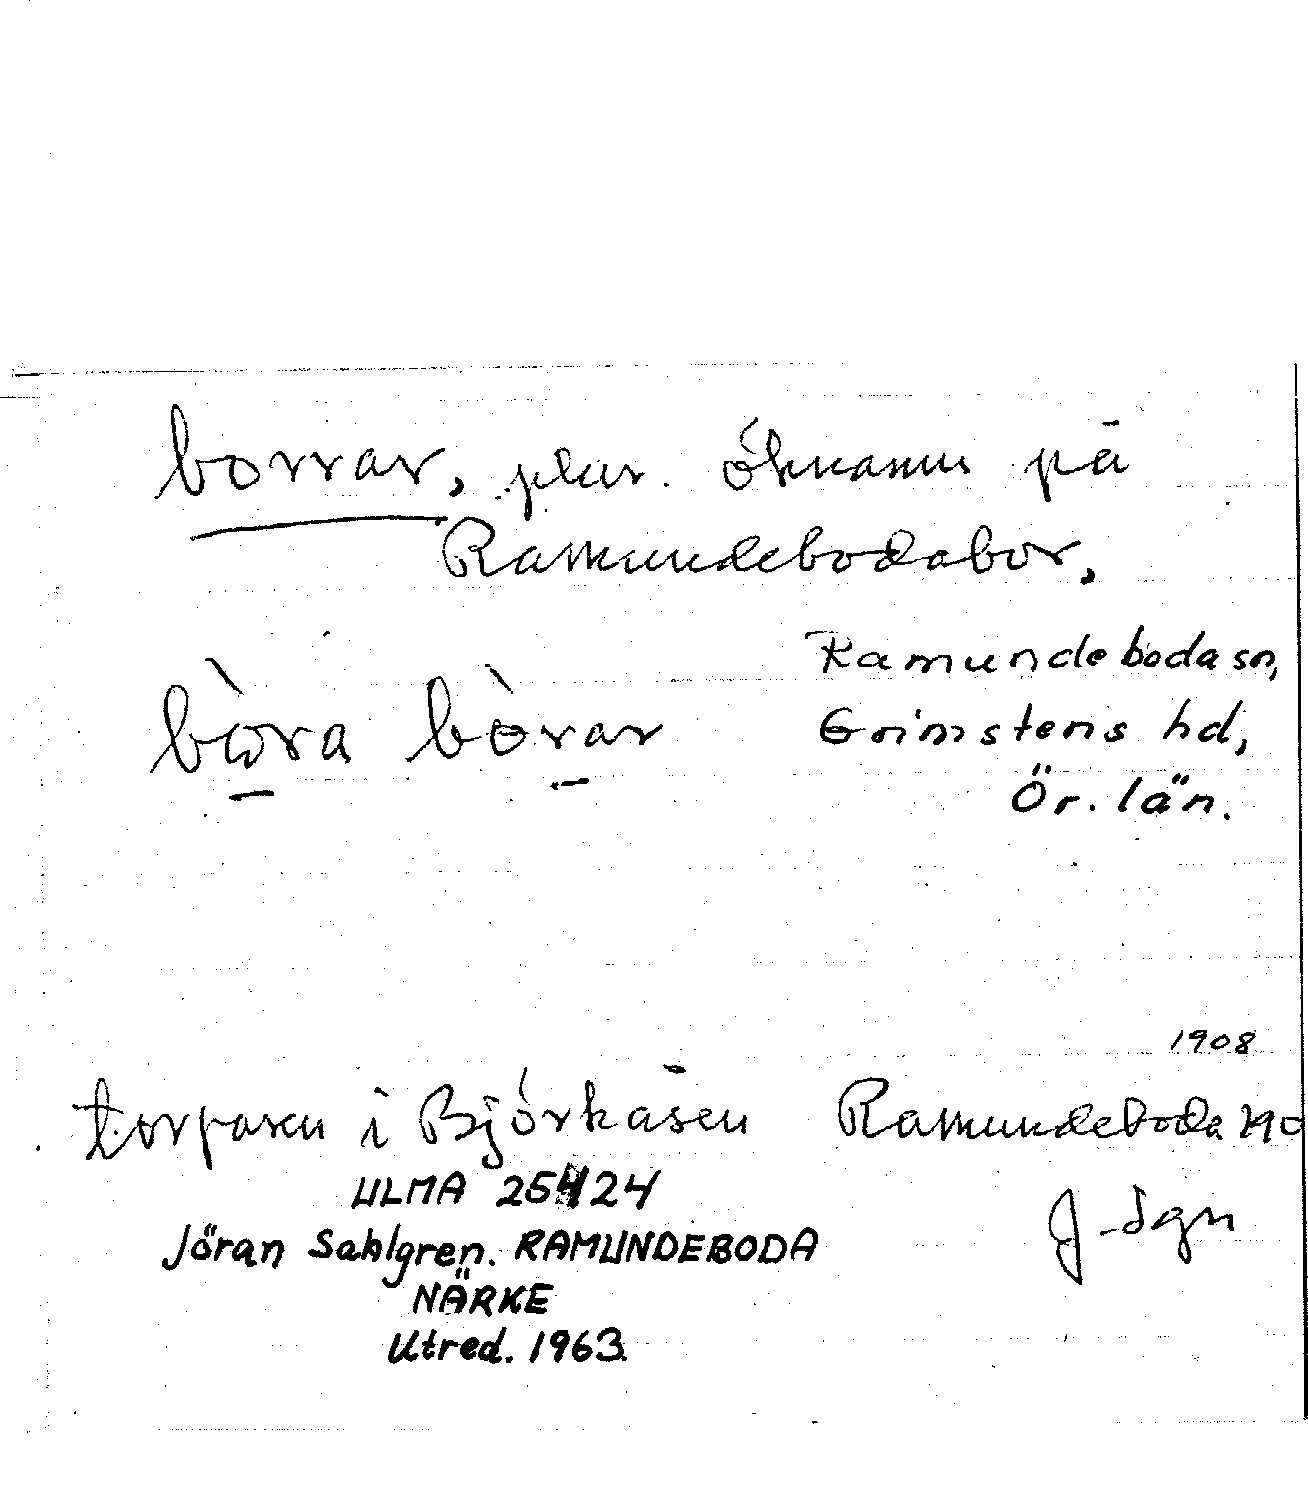 borrar, plur. öknamn på
Ramundebodabor.
Ramundeboda sn,
bòra bòrar
Grimstens hd,
Ör. län.
1908
torparen i Björkåsen Ramundeboda 190
ULMA 25424
J. Sgn
Jöran Sahlgren. RAMUNDEBODA
NÄRKE
Utred. 1963.